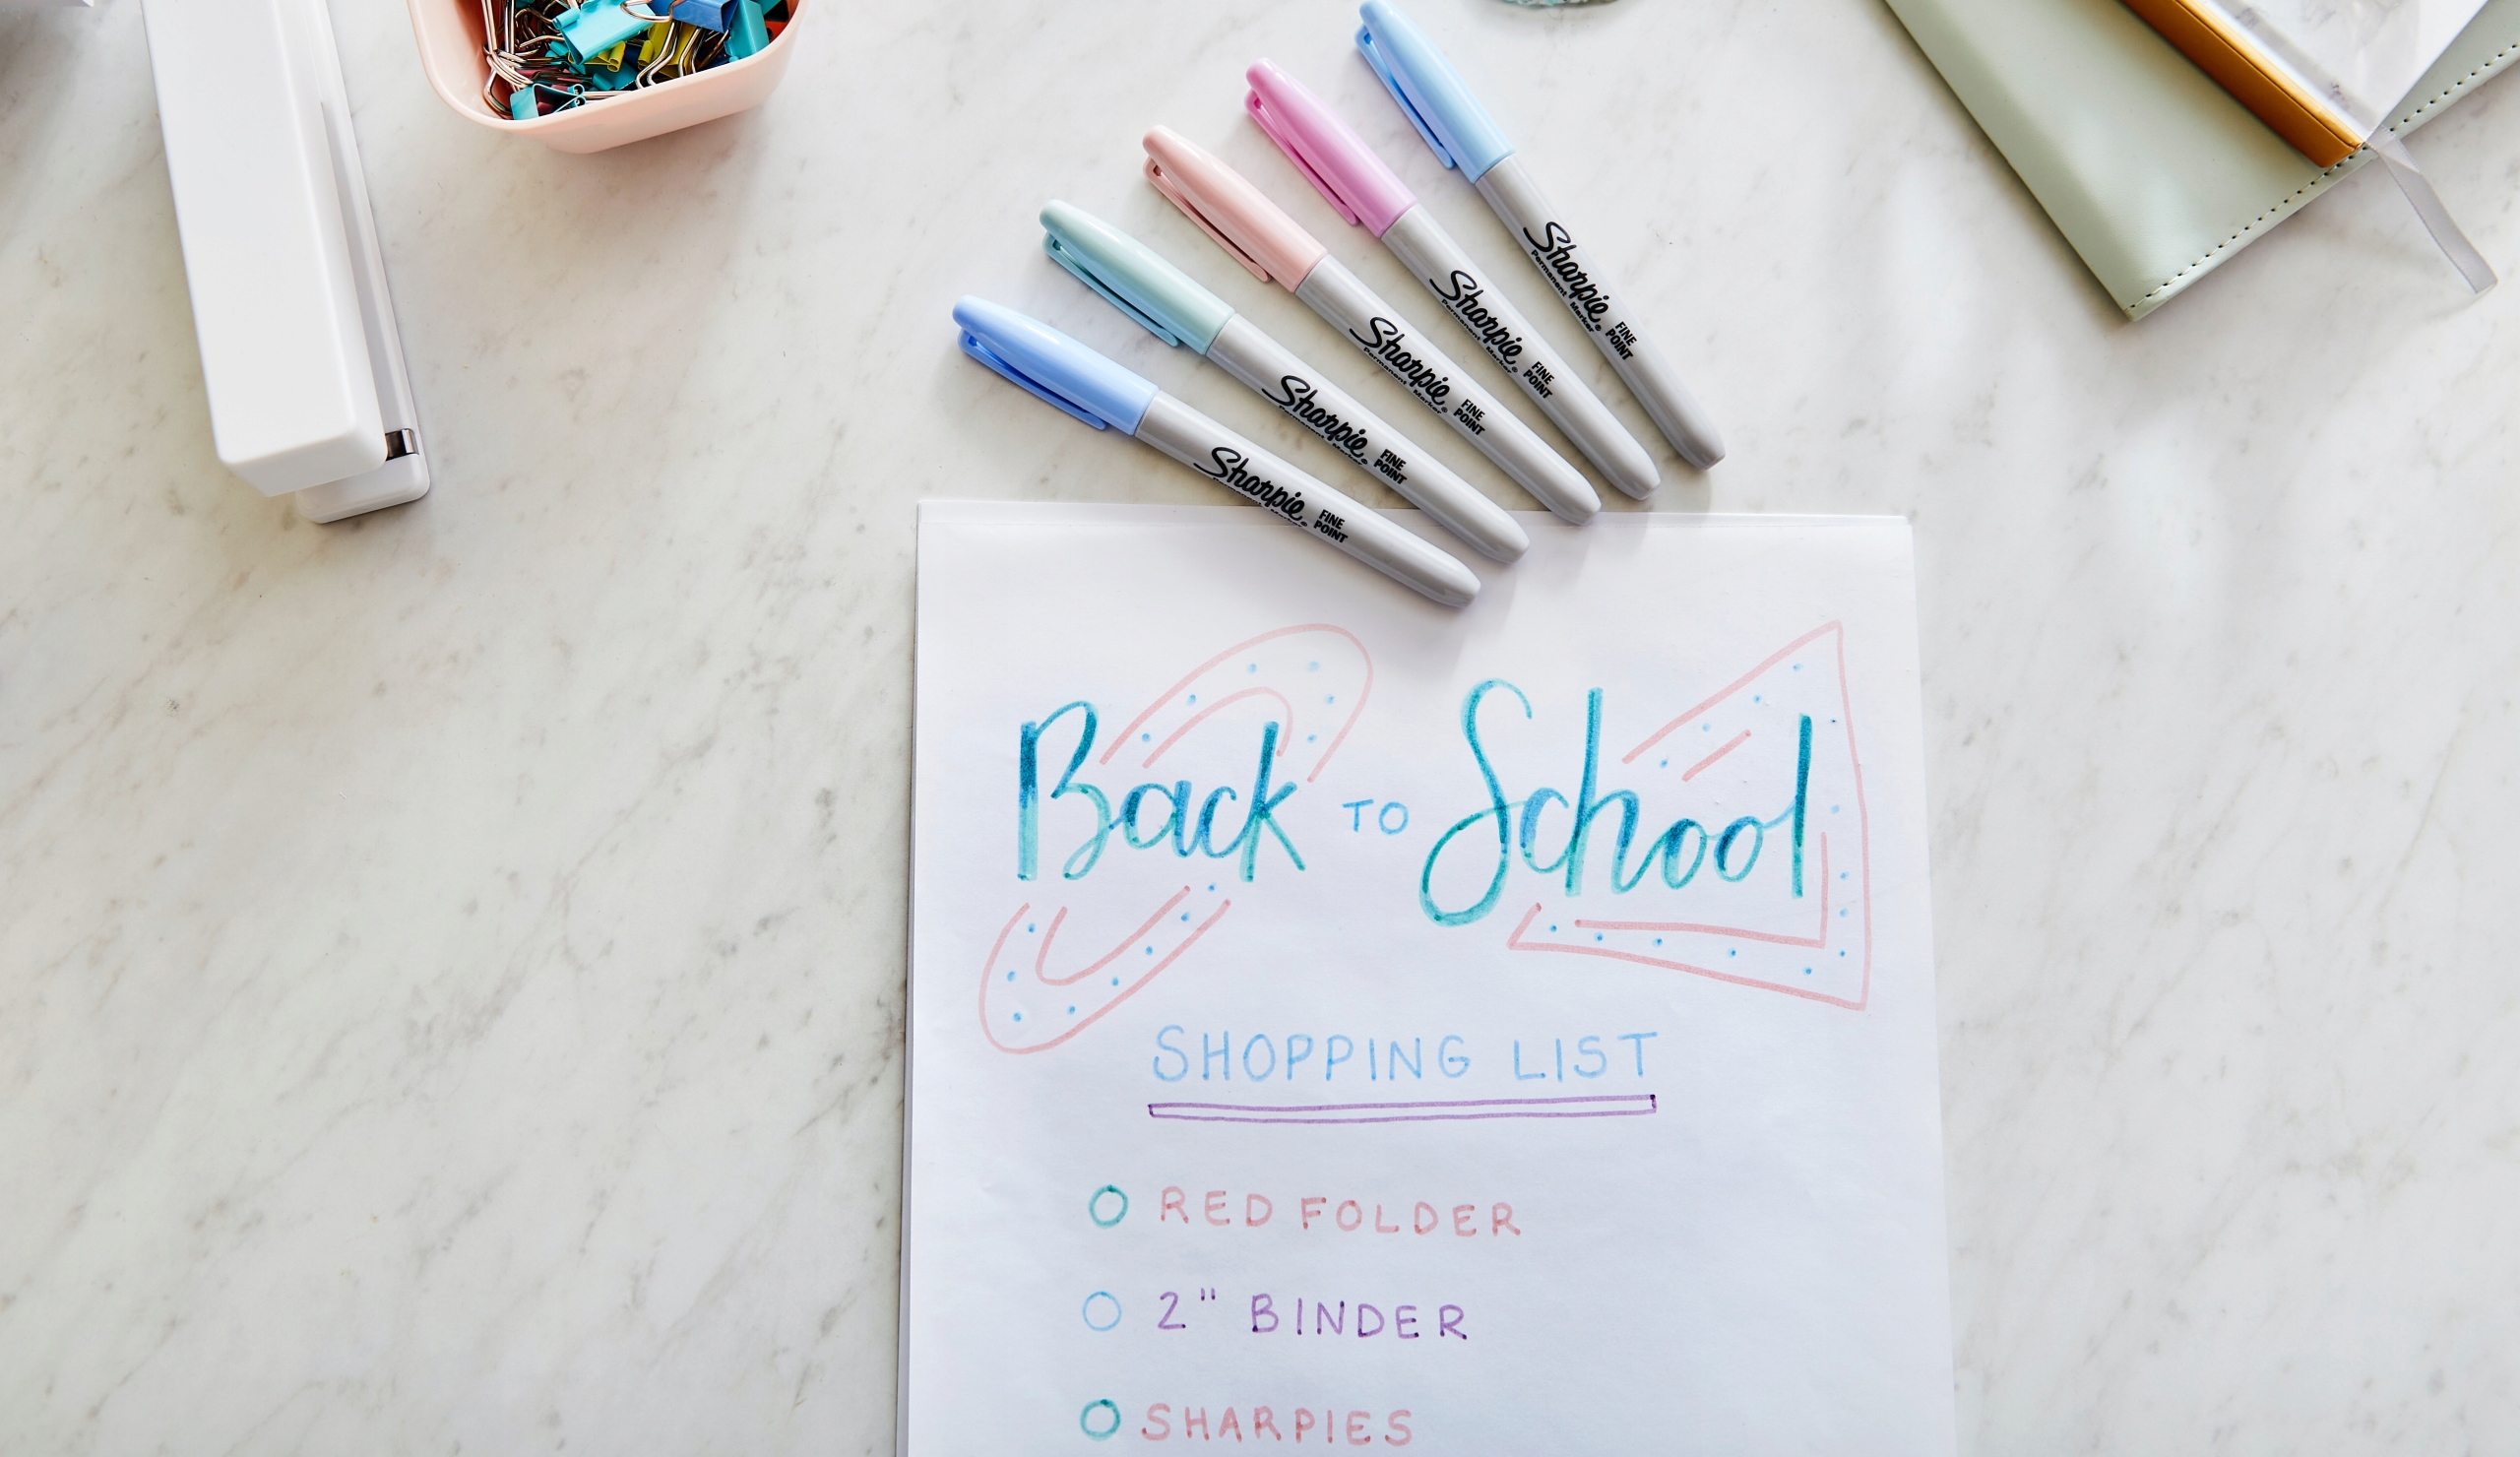 Sharpie FINE
Permanent Marker® POINT
Sharpie FINE
Permanent Marker® POINT
Sharpie FINE
Permanent Marker® POINT
Sharpie FINE
Permanent Marker POINT
Sharpie FINE
POINT
Back TO School
SHOPPING LIST
RED FOLDER
2" BINDER
SHARPIES